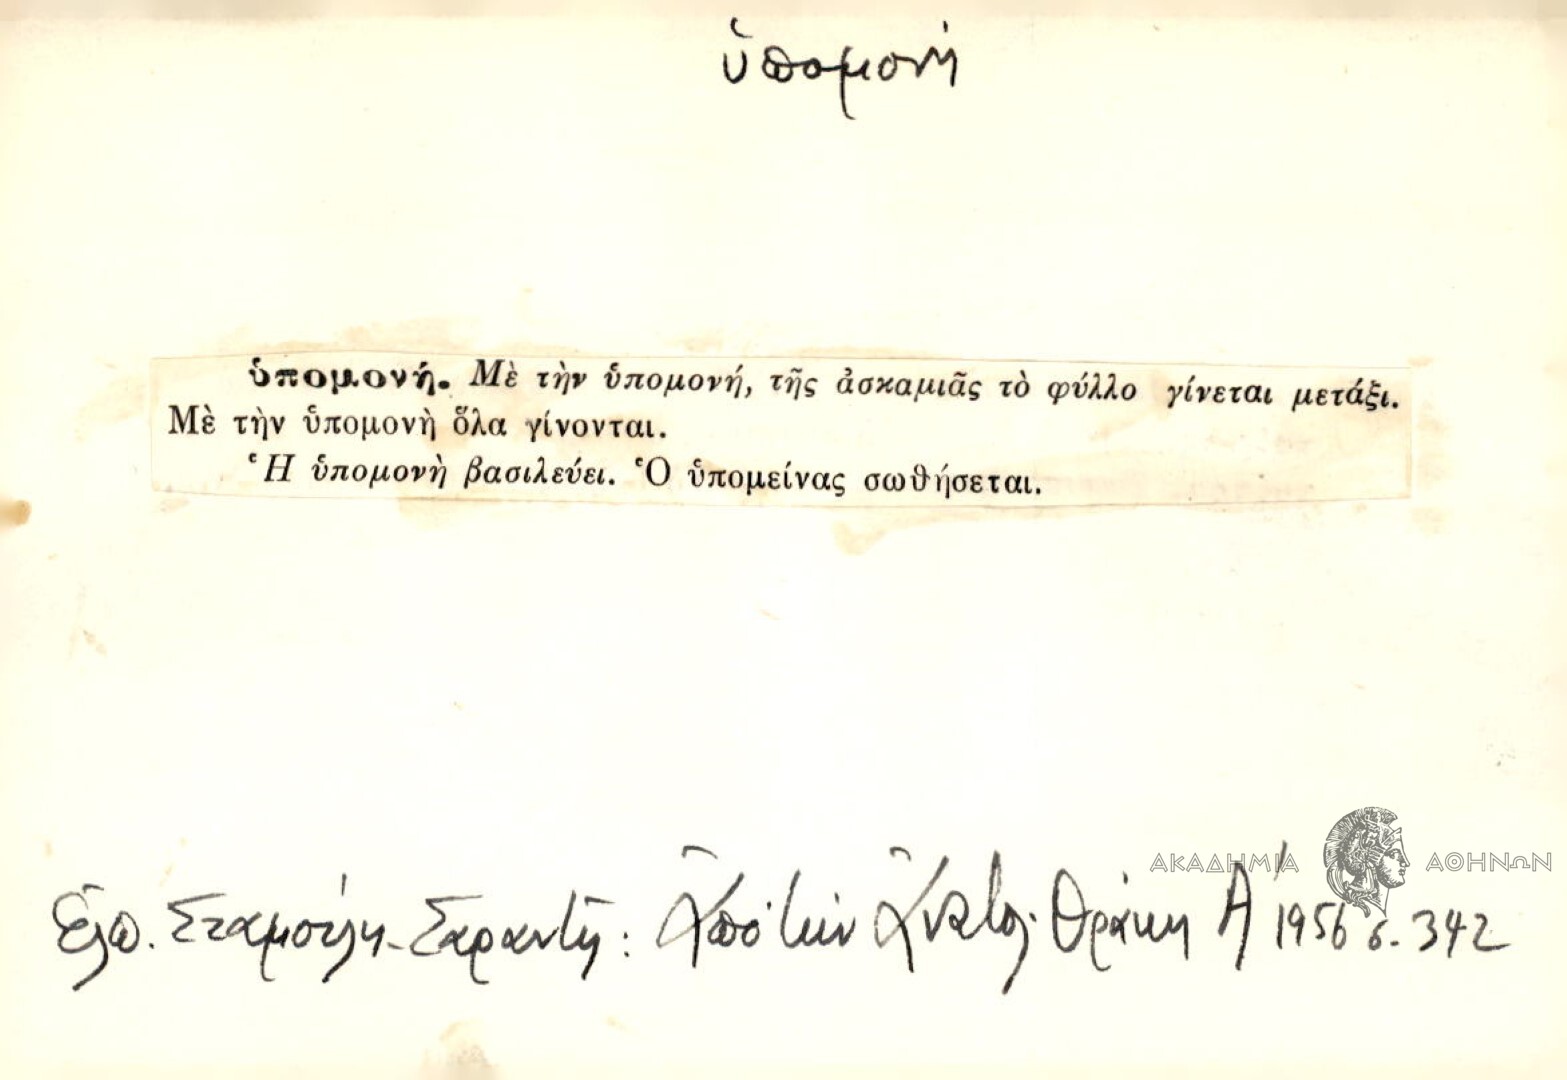 ὑπομονή
ὑπομονή. Μὲ τὴν ὑπομονή, τῆς ἀσκαμιᾶς τὸ φύλλο γίνεται μετάξι.
Μὲ τὴν ὑπομονὴ ὅλα γίνονται.
Ἡ ὑπομονὴ βασιλεύει. Ὁ ὑπομείνας σωθήσεται.
ΑΚΑΔΗΜΙΑ ΑΘΗΝΩΝ
Ἐλπ. Σταμούλη-Σαραντῆ: Ἀπὸ τὴν Ἀνατολ. Θράκη Α' 1956 σ. 342